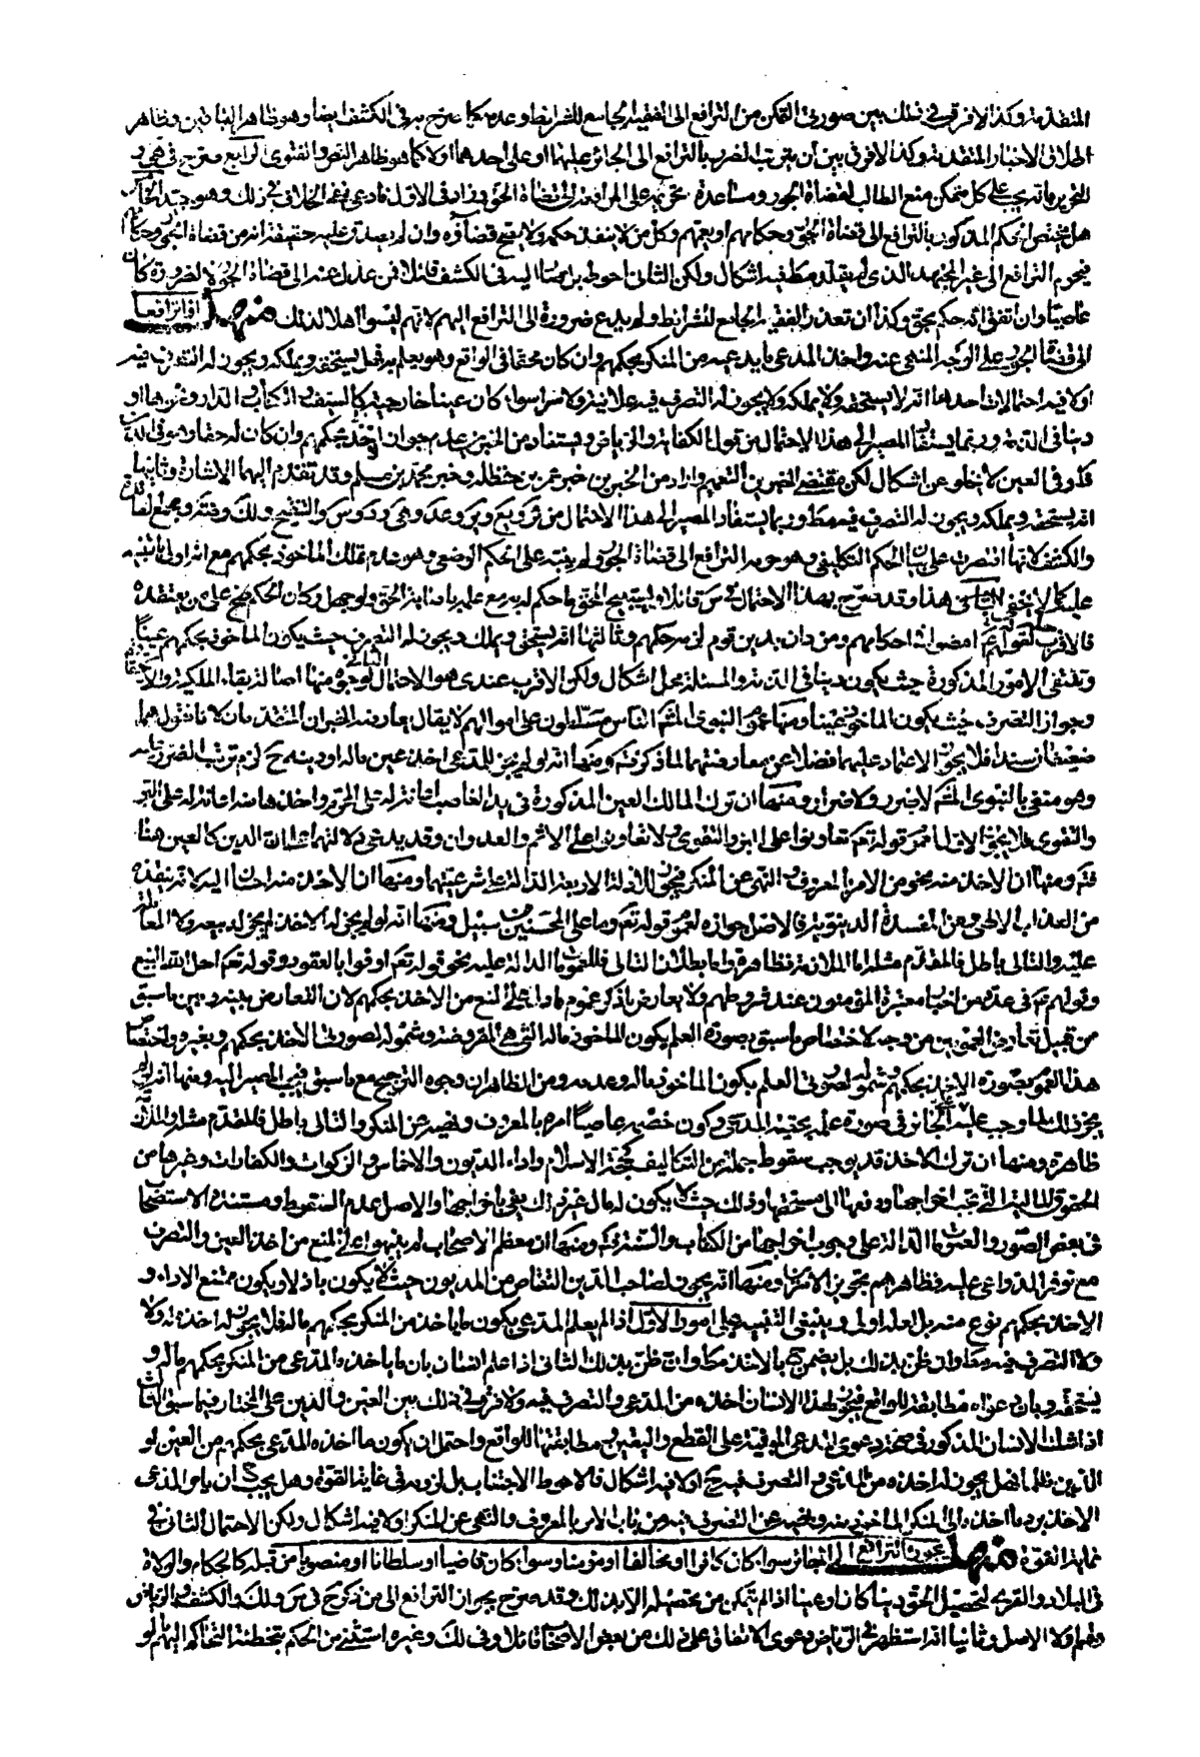 المتقدمة وكذا لا فرق في ذلك بين صورتي التمكن من الترافع الى الفقيه الجامع للشرايط وعدمه كما صرح به في الكشف ايضا وهو ظاهر الباقين وظاهر
اطلاق الاخبار المتقدمة وكذا لا فرق بين ان يترتب الضرب بالترافع الى الجائر عليهما او على احدهما او لا كما هو ظاهر النص والفتوى الرابع صرح في
التحرير بانه يجب على كل متمكن منع الطالب لقضاة الجور ومساعدة غريمه على المرافعة الى قضاة الحق وزاد في الاول فادعى نفى الخلاف في ذلك وهو جيد الخامس
هل يختص الحكم المذكور بالترافع الى قضاة الجور وحكامهم او يعمهم وكل من لا ينفذ حكمه ولا يصح قضاؤه وان لم يصدق عليه حقيقة انه من قضاة الجور وحكامهم
فيحرم الترافع الى غير المجتهد الذي لم يقلد مطلقا فيه اشكال ولكن الثاني احوط بل صار اليه في الكشف قائلا فمن عدل عنه الى قضاة الجور لا لضرورة كان
عاصيا وان اتفق انه حكم بحق وكذا ان تعذر الفقيه الجامع للشرايط ولم يدع ضرورة الى الترافع اليهم لانهم ليسوا اهلا لذلك منهل اذا ترافعا
الى قضاة الجور على الوجه المنهى عنه واخذ المدعى ما يدعيه من المنكر بحكمهم وان كان محقا في الواقع وهو يعلم به فهل يستحقه ويملكه ويجوز له التصرف فيه
او لا فيه احتمالات احدها انه لا يستحقه ولا يملكه ولا يجوز له التصرف فيه علانية ولا سرا سواء كان عينا خارجية كالسيف والكتاب والدار وغيرها او
دينا في الذمة وربما يستفاد المصير الى هذا الاحتمال من قول الكفاية والرياض ويستفاد من الخبرين عدم جواز اخذ شئ بحكمهم وان كان له حقا وهو في الدين
ظاهر وفي العين لا يخلو عن اشكال لكن مقتضى الخبرين التعميم وارادا من الخبرين خبر عمر بن حنظلة وخبر محمد بن مسلم وقد تقدم اليهما الاشارة وثانيها
انه يستحقه ويملكه ويجوز له التصرف فيه مطلقا وربما يستفاد المصير الى هذا الاحتمال من
والكشف لانها اقتصرت على بيان الحكم التكليفي وهو حرمة الترافع الى قضاة الجور ولم ينبه على الحكم الوضعي وهو عدم تملك الماخوذ بحكمهم مع انه اولى بالتنبيه
عليه كما لا يخفى هذا وقد صرح بهذا الاحتمال في س قائلا ولا يستبيح المحق ما حكم له به مع علمه باصابة الحق ولو جهل وكان الحكم صح على من يعتقده
فالاقرب لقولهم ع امضوا في احكامهم ومن دان بدين قوم لزمه حكمهم وثالثها انه يستحق ويملك ويجوز له التصرف حيث يكون الماخوذ بحكمهم عينا
وتنتفى الامور المذكورة حيث يكون دينا في الذمة والمسئلة محل اشكال ولكن الاقرب عندي هو الاحتمال الثاني لوجوه منها اصالة بقاء الملكية والاستحقاق
وجواز التصرف حيث يكون الماخوذ عينا ومنها عموم النبوي المشهور الناس مسلطون على اموالهم لا يقال يعارضه الخبران المتقدمان لانا نقول هما
ضعيفان سندا فلا يجوز الاعتماد عليهما فضلا عن معارضتهما لما ذكر فتم ومنها انه لو لم يجز للمدعى اخذ عين ماله او دينه ح لزم ترتب الضرر عليه
وهو منفى بالنبوي المشهور لا ضرر ولا ضرار ومنها ان ترك المالك العين المذكورة في يد الغاصب اعانة له على المحرم واخذها منه اعانة له على البر
والتقوى فلا يجوز الاول لعموم قوله تعالى تعاونوا على البر والتقوى ولا تعاونوا على الاثم والعدوان وقد يدعى دلالتهما على ان الدين كالعين هنا
فتم ومنها ان الاخذ منه نحو من الامر بالمعروف والنهى عن المنكر فيجوز للادلة الاربعة الدالة على شرعيتهما ومنها ان الاخذ منه احسان اليه لانه ينقذه
من العذاب الالهى ومن المفسدة الدنيوية فالاصل جوازه لعموم قوله تعالى وما على المحسنين من سبيل ومنها انه لو لم يجز له الاخذ لم يجز له بيعه ولا المعاملة
عليه والتالي باطل فالمقدم مثله اما الملازمة فظاهرة واما بطلان التالي فللعمومات الدالة عليه نحو قوله تعالى اوفوا بالعقود وقوله تعالى احل الله البيع
وقولهم ع في عدة من اخبار معتبرة المؤمنون عند شروطهم ولا يعارض ما ذكر عموم ما دل على المنع من الاخذ بحكمهم لان التعارض بينه وبين ما سبق
من قبيل تعارض العمومين من وجه لاختصاص ما سبق بصورة العلم بكون الماخوذ ماله التي هي المفروضة وشموله لصورتي الاخذ بحكمهم وبغيره واختصاص
هذا العموم بصورة الاخذ بحكمهم وشموله لصورتي العلم بكون الماخوذ ماله وعدمه ومن الظاهر ان وجوه الترجيح مع ما سبق فيجب المصير اليه ومنها انه لو لم
يجز ذلك لما وجب على الجائز في صورة علمه بحقية المدعى وكون خصمه عاصيا امره بالمعروف ونهيه عن المنكر والتالي باطل فالمقدم مثله والملازمة
ظاهرة ومنها ان ترك الاخذ قد يوجب سقوط جملة من التكاليف كحجة الاسلام واداء الديون والاخماس والزكوات والكفارات وغيرها من
الحقوق المالية التي يجب اخراجها ودفعها الى مستحقها وذلك حيث لا يكون له مال غيره ذلك يفى باخراجها والاصل عدم السقوط ومستنده الاستصحاب
في بعض الصور والعمومات الدالة على وجوب اخراجها من الكتاب والسنة فتم ومنها ان معظم الاصحاب لم ينبهوا على المنع من اخذ العين والتصرف
مع توفر الدواعي عليه فظاهرهم تجويز الامرين ومنها انه يجوز لصاحب الدين التقاص من المديون حيث لا يكون باذلا ويكون ممتنع الاداء و
الاخذ بحكمهم نوع منه بل لعله اولى وينبغي التنبيه على امور الاول اذا لم يعلم المدعى بكون ما ياخذه من المنكر بحكمهم ماله فلا يجوز له اخذه ولا
ولا التصرف فيه مطلقا وان ظن بذلك بل يضمن ح بالاخذ مطلقا وان ظن بذلك الثاني اذا علم انسان بان ما ياخذه المدعى من المنكر بحكمهم ماله و
يستحقه وبان دعواه مطابقة للواقع فيجوز لهذا الانسان اخذه من المدعى والتصرف فيه ولا فرق في ذلك بين العين والدين على المختار فيما سبق الثالث
اذا شك الانسان المذكور في صحة دعوى المدعى الموقتة على القطع واليقين بمطابقتها للواقع واحتمل ان يكون ما اخذه المدعى بحكمهم من العين او
الدين ظلما فهل يجوز له اخذه من المدعى والتصرف فيه ح او لا فيه اشكال فالاحوط الاجتناب بل لزومه في غاية القوة وهل يجب ح ان يامر المدعى
الاخذ برد ما اخذه الى المنكر الماخوذ منه ونهيه عن التصرف فيه من باب الامر بالمعروف والنهى عن المنكر او لا فيه اشكال ولكن الاحتمال الثاني في
غاية القوة منهل يجوز الترافع الى الجائر سواء كان كافرا او مخالفا او مؤمنا وسواء كان قاضيا او سلطانا او منصوبا من قبله كالحكام والولاة
في البلاد والقرى لتحصيل الحق دينا كان او عينا اذا لم يتمكن من تحصيله الا بذلك وقد صرح بجواز الترافع الى من ذكر ح في س ولك والكشف والرياض
ولهم اولا الاصل وثانيا انه استظهر في الرياض دعوى الاتفاق على ذلك من بعض الاصحاب قائلا وفي لك وغيره استثنى من الحكم بتخطئة التحاكم اليهم لو